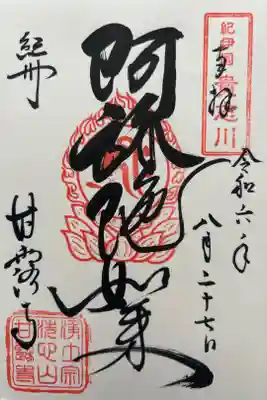 紀伊国貴志川
奉拝
令和六年
八月二十七日
阿弥陀如来
紀州
甘露寺
浄土宗
甘露寺